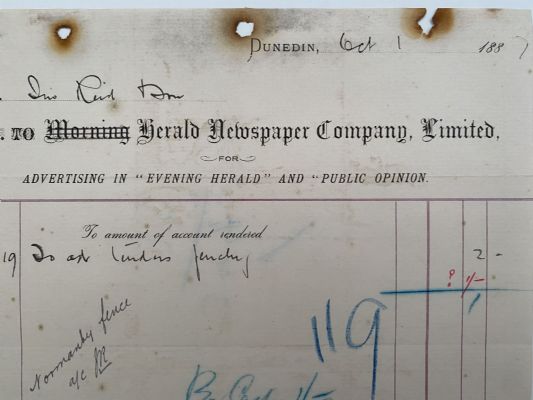 DUNEDIN, Oct 1 1887
Reid
TO Morning Herald Newspaper Company, Limited,
FOR
ADVERTISING IN "EVENING HERALD" AND "PUBLIC OPINION.
To amount of account rendered
19 To adv tenders fencing 2 -
? 1/-
1
119
Normandy fence
a/c
By